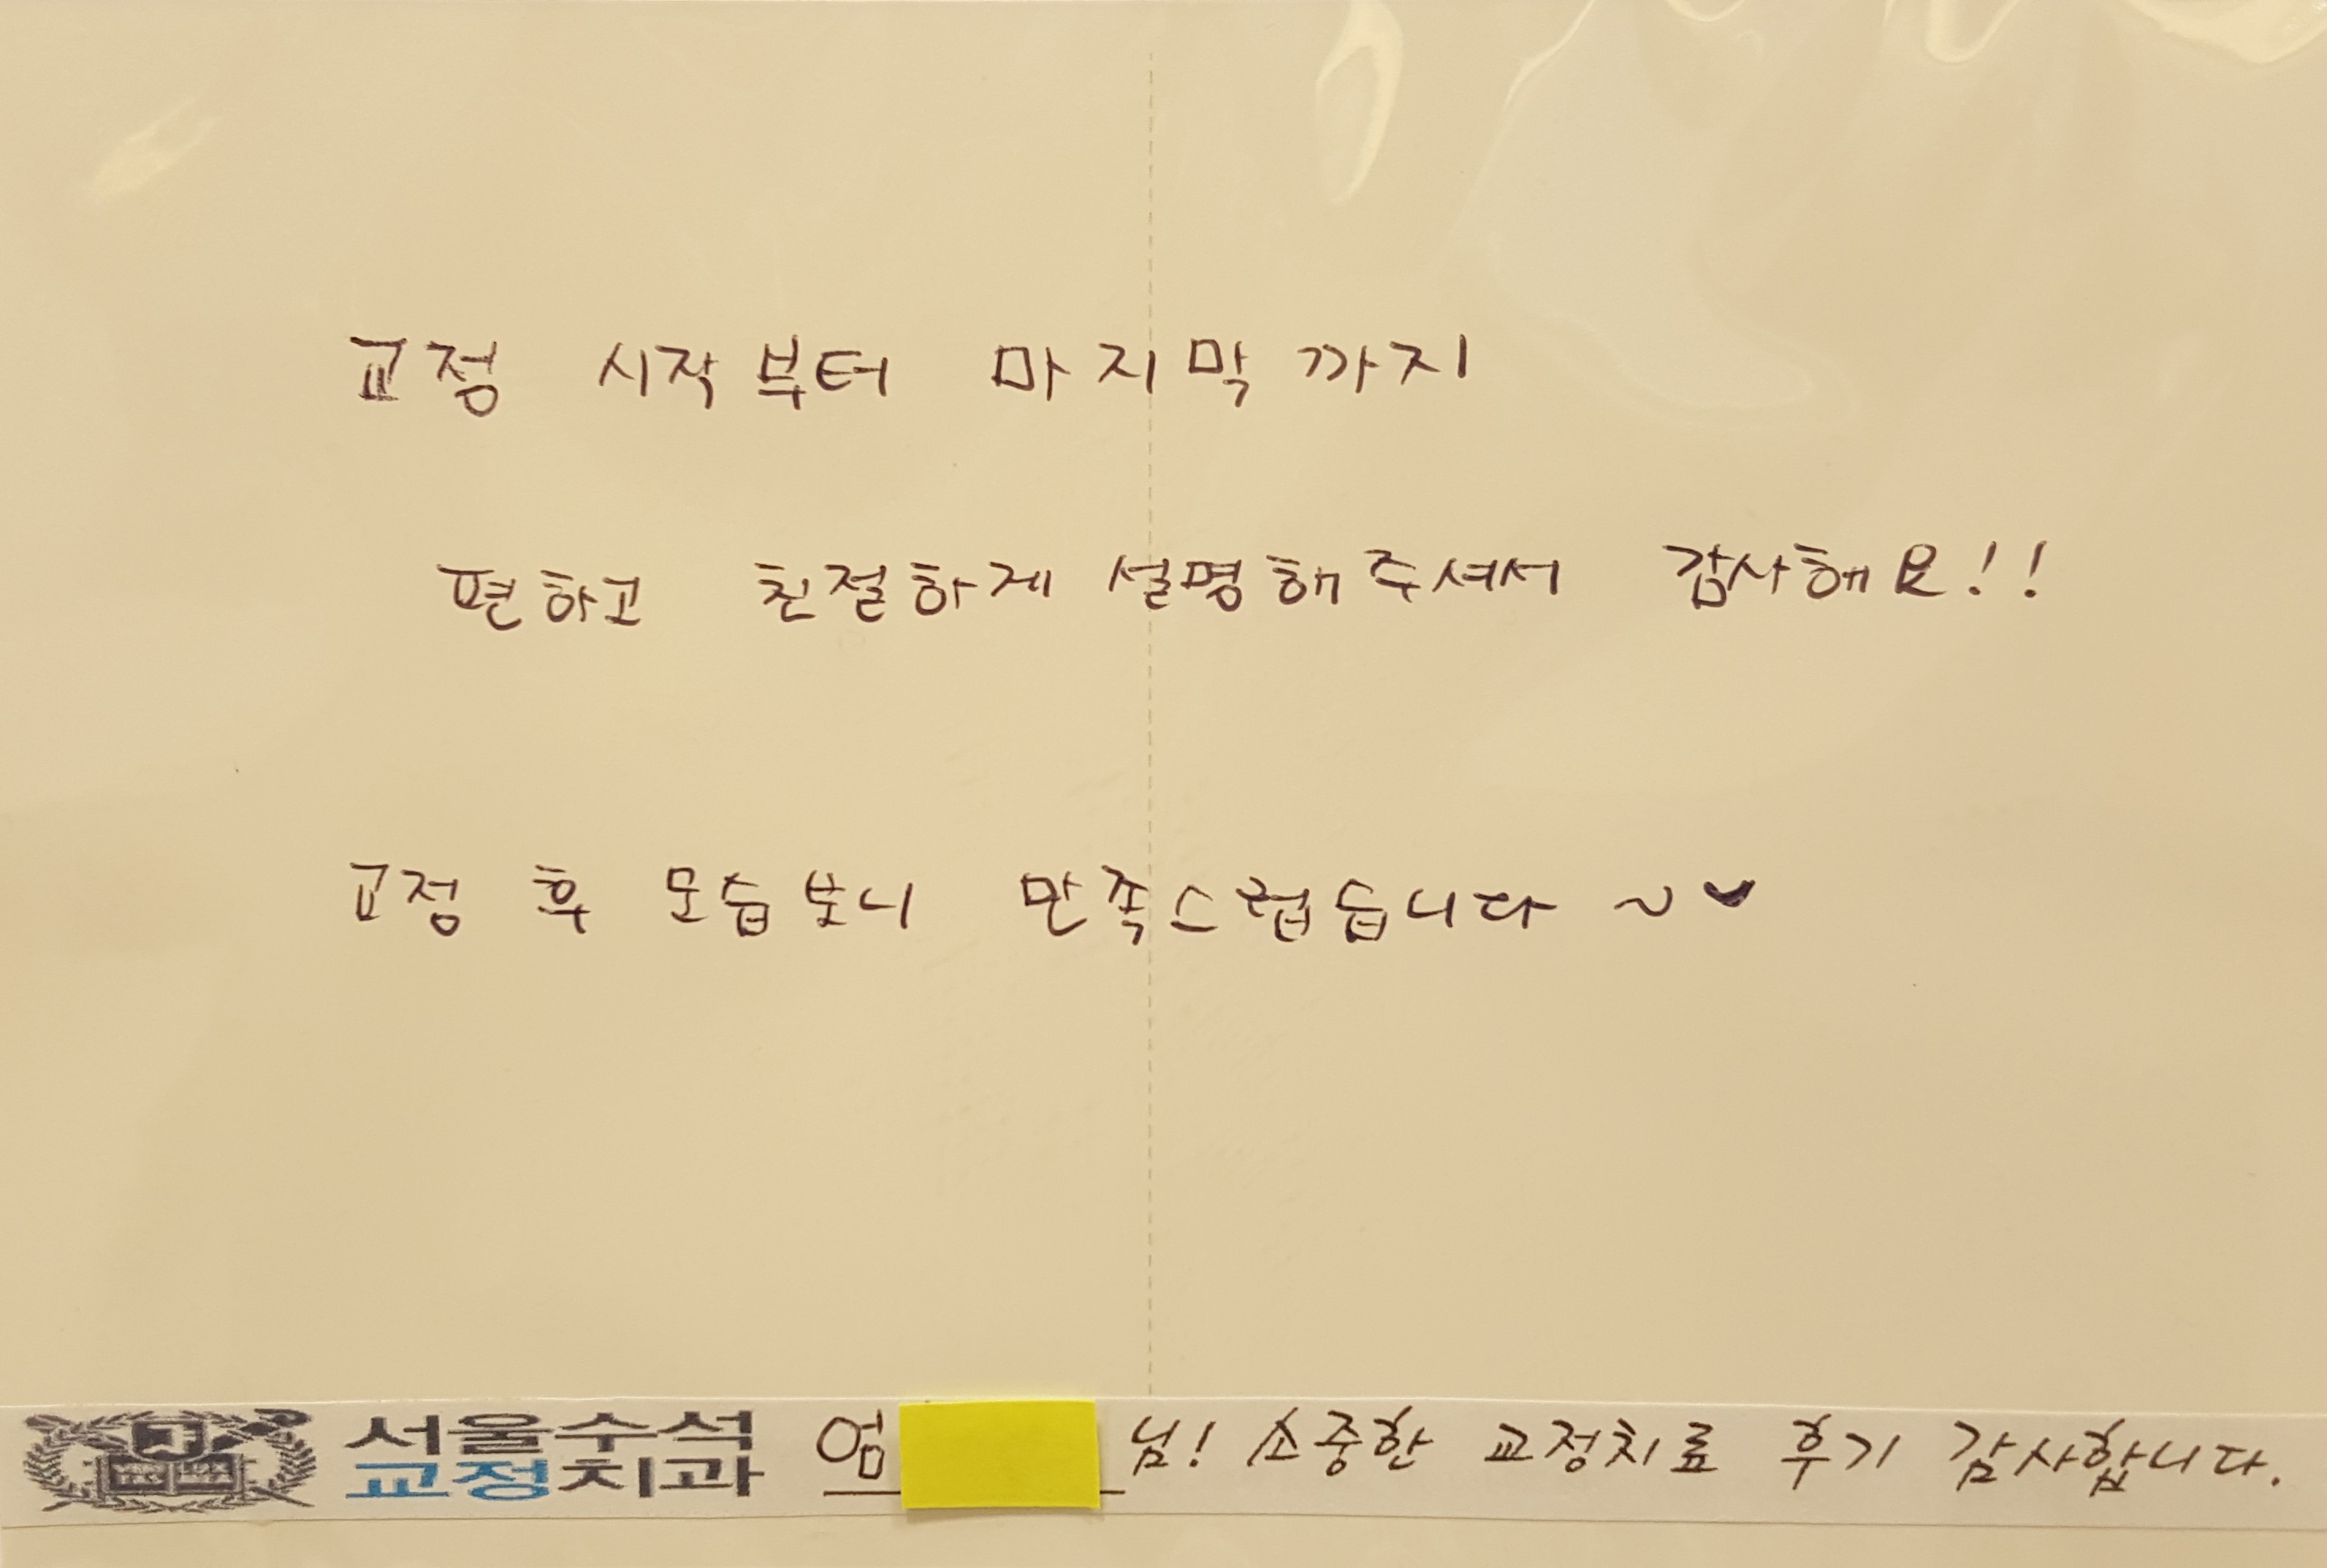 교정 시작부터 마지막까지
편하고 친절하게 설명해주셔서 감사해요!!
교정 후 모습보니 만족스럽습니다 ~♥
서울수석
교정치과
엄 님! 소중한 교정치료 후기 감사합니다.